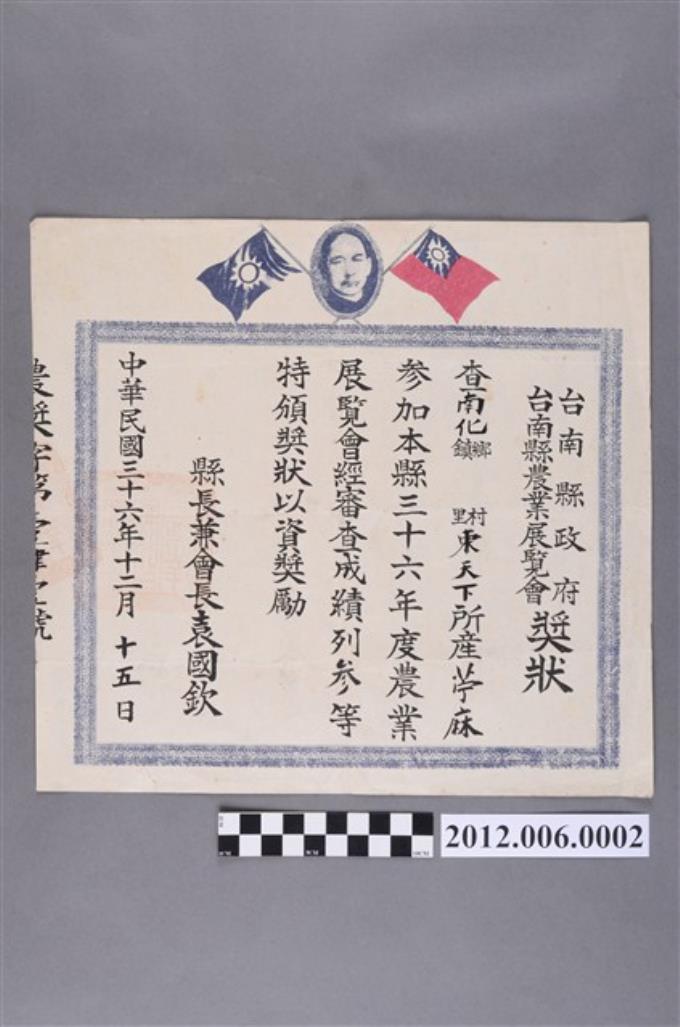 台南縣政府
台南縣農業展覽會
獎狀
查南化鄉鎮 村里東天下所產苧麻
參加本縣三十六年度農業
展覽會經審查成績列參等
特頒獎狀以資獎勵
縣長兼會長袁國欽
中華民國三十六年十二月十五日
農獎字第
號
2012.006.0002